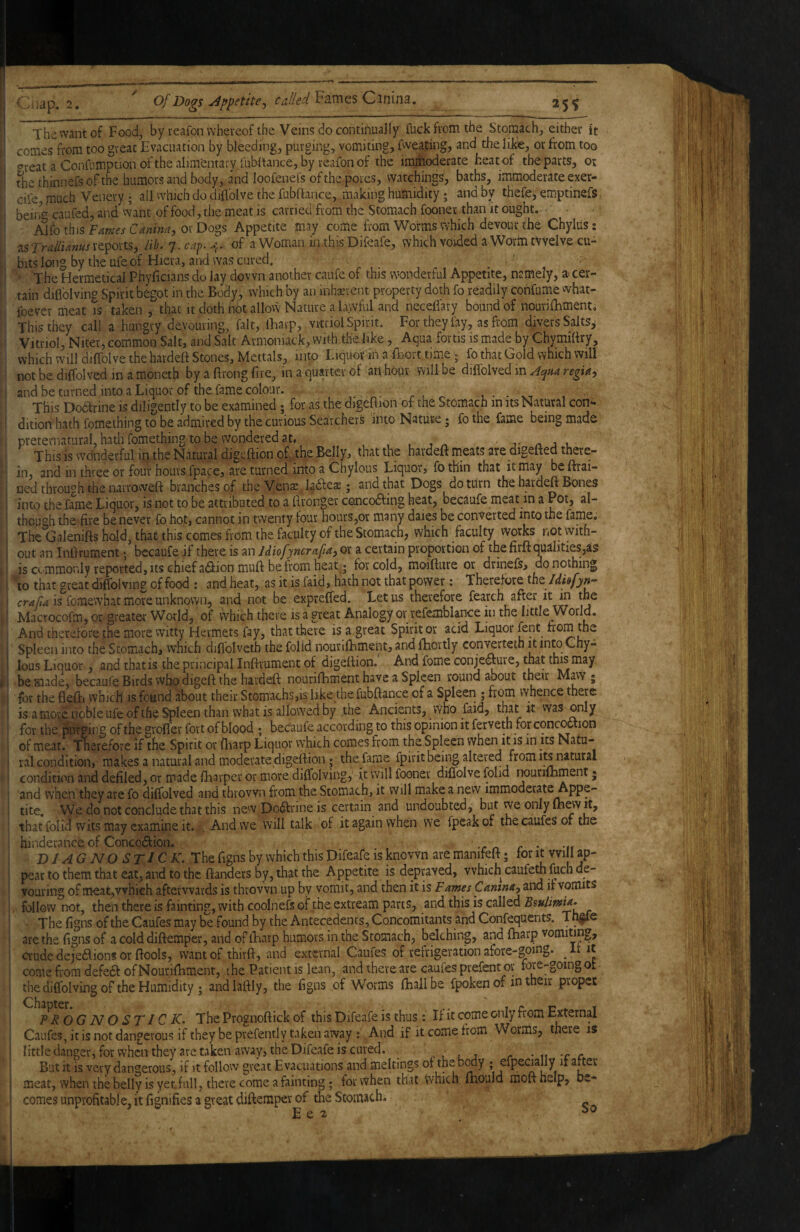 Chap. 2. Of Dogs Appetite, called Fames Canina. 255
The want of Food, by reason whereof the Veins do continually suck from the Stomach, either it
comes from too great Evacuation by bleeding, purging, vomiting, sweating, and the like, or from too
great a Consumption of the alimentary substance, by reason of the immoderate heat of the parts, or
the thinness of the humors and body, and looseness of the pores, watchings, baths, immoderate exer-
cise, much Venery; all which do dissolve the substance, making humidity; and by these, emptiness
being caused, and want of food, the meat is carried from the Stomach sooner than it ought.
Also this Fames Canina, or Dogs Appetite may come from Worms which devour the Chylus:
as Trallianus reports, lib. 7. cap. 4. of a Woman in this Disease, which voided a Worm twelve cu-
bits long by the use of Hiera, and was cured.
The Hermetical Physicians do lay down another cause of this wonderful Appetite, namely, a cer-
tain dissolving Spirit begot in the Body, which by an inhærent property doth so readily consume what-
soever meat is taken, that it doth not allow Nature a lawful and necessary bound of nourishment.
This they call a hungry devouring, salt, sharp, vitriol Spirit. For they say, as from divers Salts,
Vitriol, Niter, common Salt, and Salt Armoniack, with the like, Aqua fortis is made by Chymistry,
which will dissolve the hardest Stones, Mettals, into Liquor in a short time; so that Gold which will
not be dissolved in a moneth by a strong fire, in a quarter of an hour will be dissolved in Aqua regia,
and be turned into a Liquor of the same colour.
This Doctrine is diligently to be examined; for as the digestion of the Stomach in its Natural con-
dition hath something to be admired by the curious Searchers into Nature; so the same being made
preternatural, hath something to be wondered at.
This is wonderful in the Natural digestion of the Belly, that the hardest meats are digested there-
in, and in three or four hours space, are turned into a Chylous Liquor, so thin that it may be strai-
ned through the narrowest branches of the Venæ lacteæ; and that Dogs do turn the hardest Bones
into the same Liquor, is not to be attributed to a stronger concocting heat, because meat in a Pot, al-
though the fire be never so hot, cannot in twenty four hours, or many daies be converted into the same.
The Galenists hold, that this comes from the faculty of the Stomach, which faculty works not with-
out an Instrument; because if there is an Idiosyncrasia, or a certain proportion of the first qualities, as
is commonly reported, its chief action must be from heat; for cold, moisture or driness, do nothing
to that great dissolving of food: and heat, as it is said, hath not that power: Therefore the Idiosyn-
crasia is somewhat more unknown, and not be expressed. Let us therefore search after it in the
Macrocosm, or greater World, of which there is a great Analogy or resemblance in the little World.
And therefore the more witty Hermets say, that there is a great Spirit or acid Liquor sent from the
Spleen into the Stomach, which dissolveth the solid nourishment, and shortly converteth it into Chy-
lous Liquor, and that is the principal Instrument of digestion. And some conjecture, that this may
be made, because Birds who digest the hardest nourishment have a Spleen round about their Maw;
for the flesh which is found about their Stomachs, is like the substance of a Spleen; from whence there
is a more noble use of the Spleen than what is allowed by the Ancients, who said, that it was only
for the purging of the grosser sort of blood; because according to this opinion it serveth for concoction
of meat. Therefore if the Spirit or sharp Liquor which comes from the Spleen when it is in its Natu-
ral condition, makes a natural and moderate digestion; the same spirit being altered from its natural
condition and defiled, or made sharper or more dissolving, it will sooner dissolve solid nourishment;
and when they are so dissolved and thrown from the Stomach, it will make a new immoderate Appe-
tite. We do not conclude that this new Doctrine is certain and undoubted, but we only shew it,
that solid wits may examine it. And we will talk of it again when we speak of the causes of the
hinderance of Concoction.
DIAGNOSTICK. The signs by which this Disease is known are manifest; for it will ap-
pear to them that eat, and to the standers by, that the Appetite is depraved, which causeth such de-
vouring of meat, which afterwards is thrown up by vomit, and then it is Fames Canina, and if vomits
follow not, then there is fainting, with coolness of the extream parts, and this is called Boulimia.
The signs of the Causes may be found by the Antecedents, Concomitants and Consequents. These
are the signs of a cold distemper, and of sharp humors in the Stomach, belching, and sharp vomiting,
crude dejections or stools, want of thirst, and external Causes of refrigeration afore-going. If it
come from defect of Nourishment, the Patient is lean, and there are causes present or fore-going of
the dissolving of the Humidity; and lastly, the signs of Worms shall be spoken of in their proper
Chapter.
PROGNOSTICK. The Prognostick of this Disease is thus: If it come only from External
Causes, it is not dangerous if they be presently taken away: And if it come from Worms, there is
little danger, for when they are taken away, the Disease is cured.
But it is very dangerous, if it follow great Evacuations and meltings of the body; especially if after
meat, when the belly is yet full, there come a fainting; for when that which should most help, be-
comes unprofitable, it signifies a great distemper of the Stomach.
E e 2 So